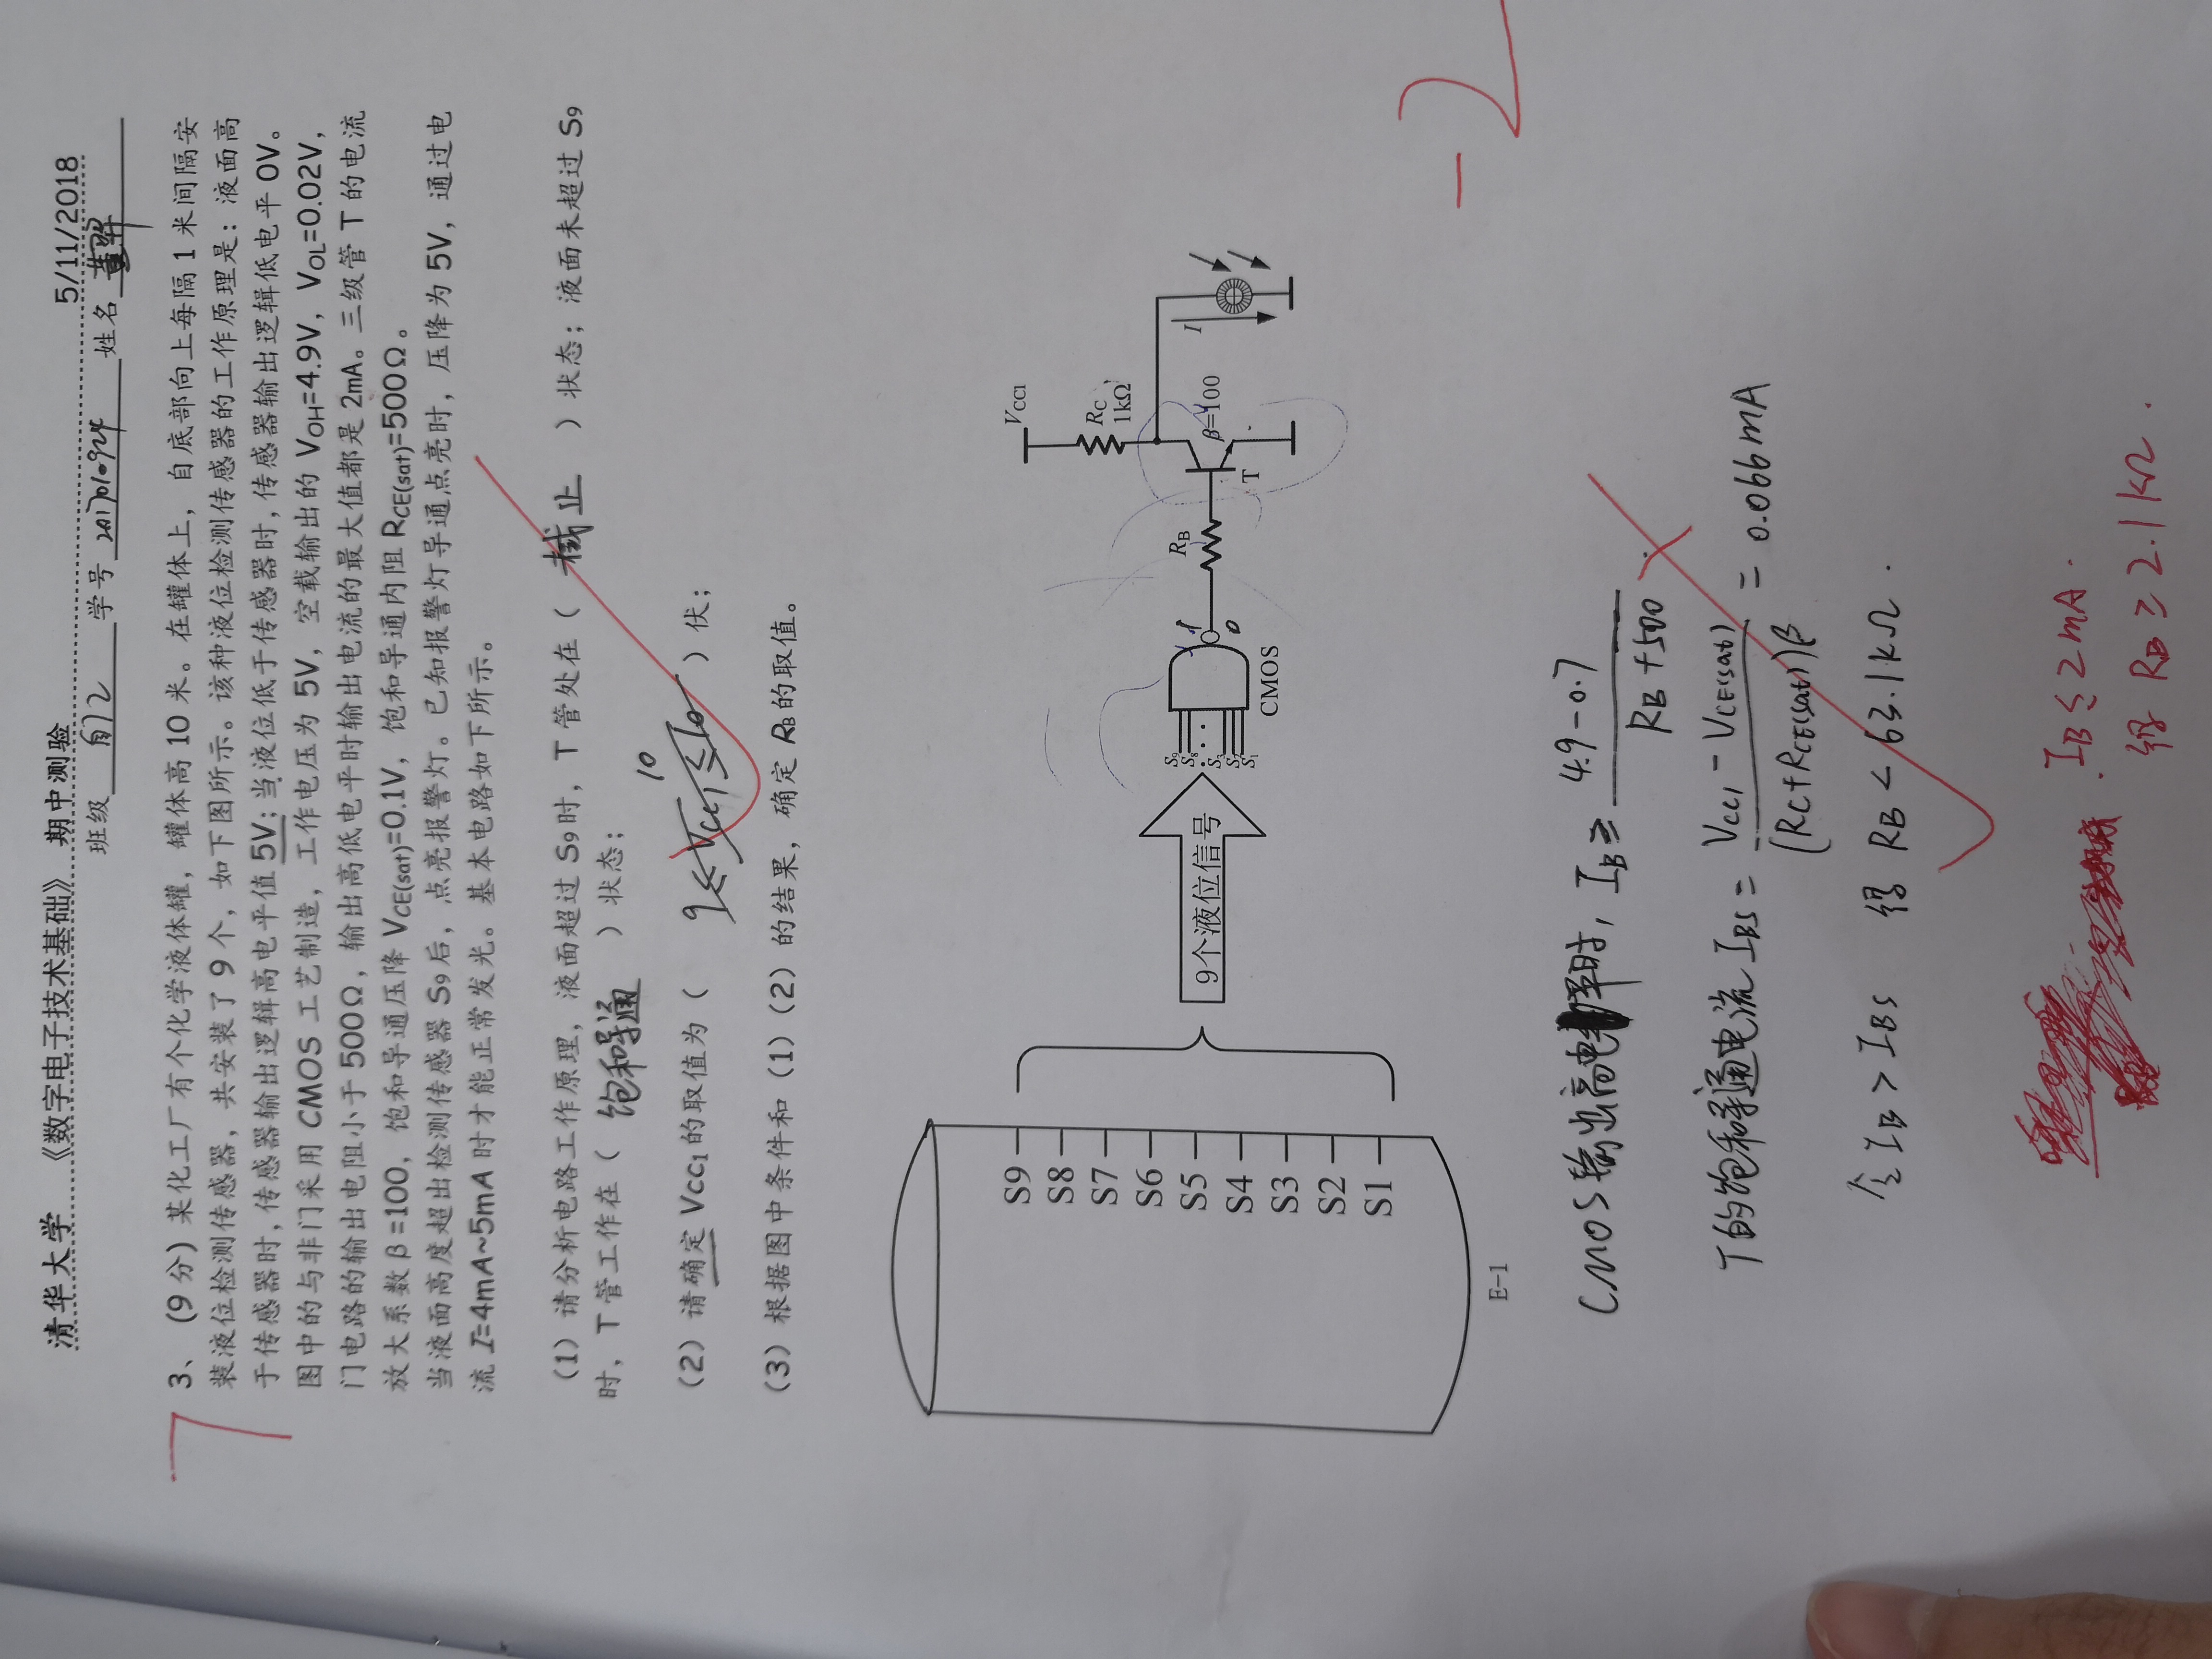 清华大学 《数字电子技术基础》 期中测验 5/11/2018
班级 自72 学号 2017010924 姓名
7
3、(9分) 某化工厂有个化学液体罐，罐体高10米。在罐体上，自底部向上每隔1米间隔安
装液位检测传感器，共安装了9个，如下图所示。该种液位检测传感器的工作原理是：液面高
于传感器时，传感器输出逻辑高电平值5V；当液位低于传感器时，传感器输出逻辑低电平0V。
图中的与非门采用CMOS工艺制造，工作电压为5V，空载输出的VOH=4.9V，VOL=0.02V，
门电路的输出电阻小于500Ω，输出高低电平时输出电流的最大值都是2mA。三级管T的电流
放大系数β=100，饱和导通压降VCE(sat)=0.1V，饱和导通内阻RCE(sat)=500Ω。
当液面高度超出检测传感器S9后，点亮报警灯。已知报警灯导通点亮时，压降为5V，通过电
流I=4mA~5mA时才能正常发光。基本电路如下所示。
（1）请分析电路工作原理，液面超过S9时，T管处在（ 截止 ）状态；液面未超过S9
时，T管工作在（ 饱和导通 ）状态；
10
（2）请确定VCC1的取值为（ 9≤VCC1≤10 ）伏；
（3）根据图中条件和（1）（2）的结果，确定RB的取值。
S9
S8
S7
S6
S5
S4
S3
S2
S1
E-1
9个液位信号
S9
S8
S3
S2
S1
CMOS
1
0
RB
T
β=100
VCC1
RC
1kΩ
I
-2
CMOS输出高电平时，IB ≥ (4.9-0.7)/(RB+500)
T的饱和导通电流 IBS = (VCC1-VCE(sat))/((RC+RCE(sat))β) = 0.066mA
令IB > IBS 得 RB < 63.1kΩ.
IB ≤ 2mA.
得 RB ≥ 2.1kΩ.